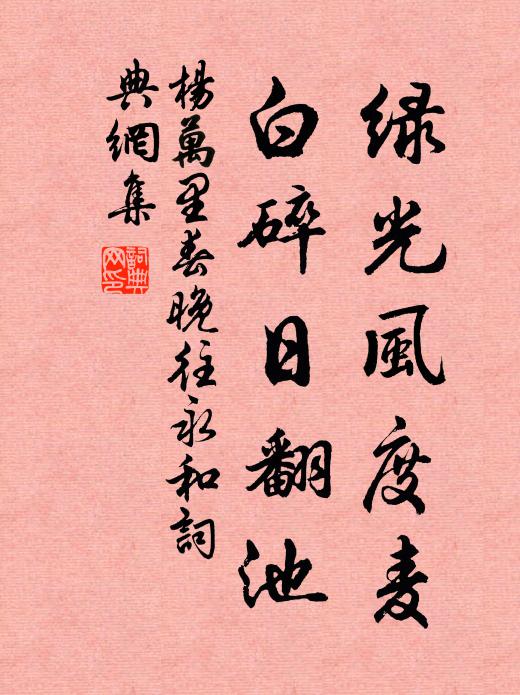 绿光風度麦
白碎日翻池
楊萬里春晚往永和詞
典網集
詞典
网印